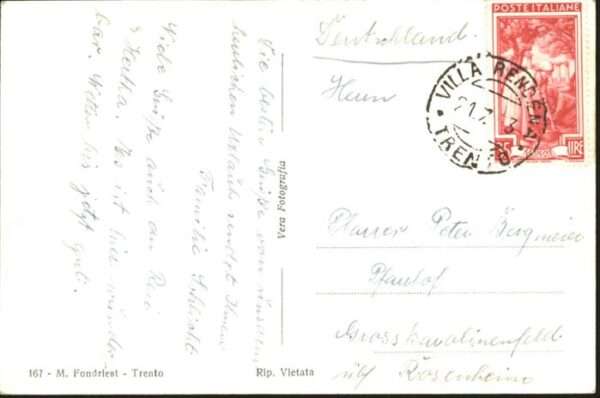 Die besten Grüße von unserem
herrlichen Urlaub sendet Ihnen
Familie
Viele Grüße auch an Resi
& Hertha. Es ist hier wunder-
bar. Wetter bis jetzt
gut.
Vera Fotografia
167 - M. Fondriest - Trento
Rip. Vietata
Deutschland.
Herrn
Pfarrer Peter Bergmeier
Pfarrhof
Grosskarolinenfeld
üb/ Rosenheim
POSTE ITALIANE
LIRE
VILLA RENDENA
TRENTO